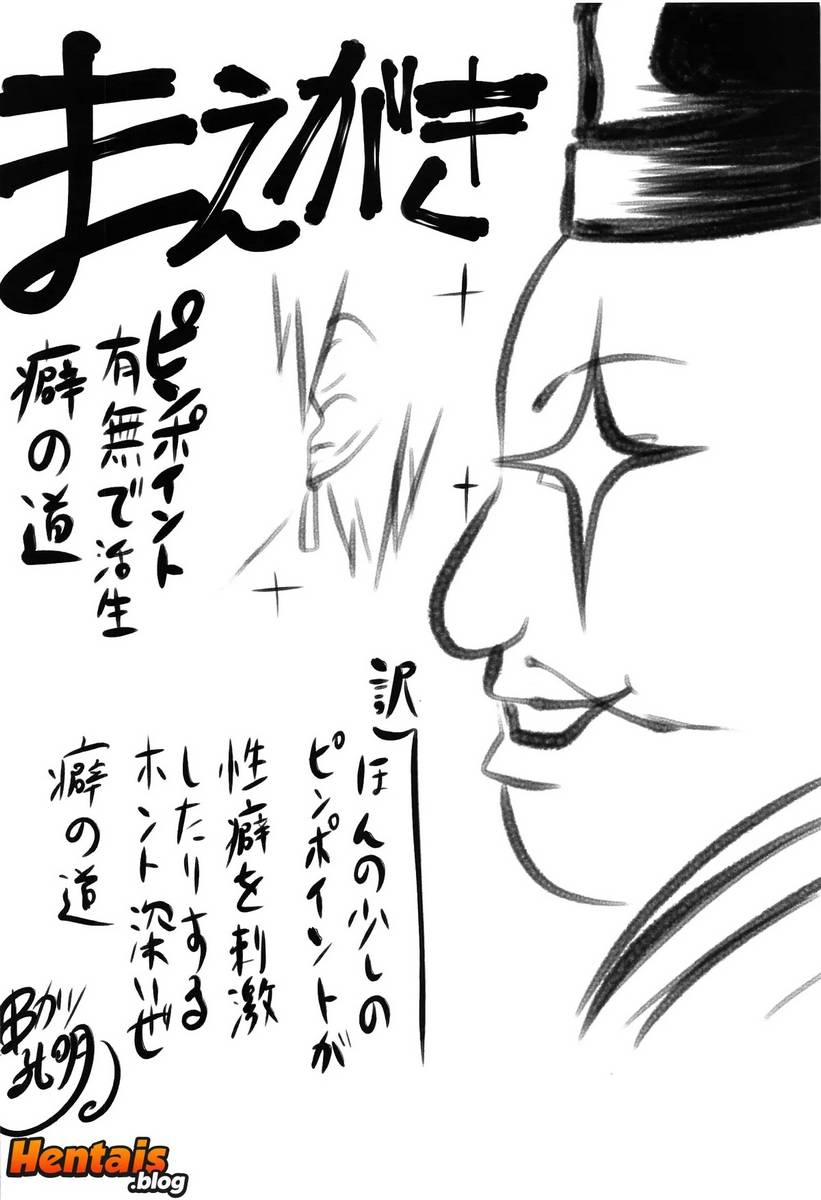 まえがき
ピンポイント
有無で活生
癖の道
訳
ほんの少しの
ピンポイントが
性癖を刺激
したりする
ホント深いぜ
癖の道
串カツ
孔明
Hentais
.blog